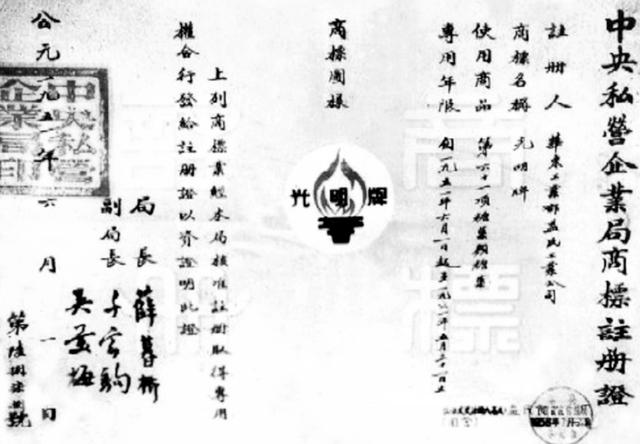 中央私營企業局商標註冊證
註冊人 華東工業部益民工業公司
商標名稱 光明牌
使用商品 第六十一項糖菓類糖菓
專用年限 自一九五一年六月一日起至一九七一年五月三十一日止
商標圖樣
光明牌
上列商標業經本局核准註冊取得專用
權合行發給註冊證以資證明此證
局長 薛暮橋
副局長 千家駒
吳羹梅
公元一九五一年六月一日
中央私營企業局印